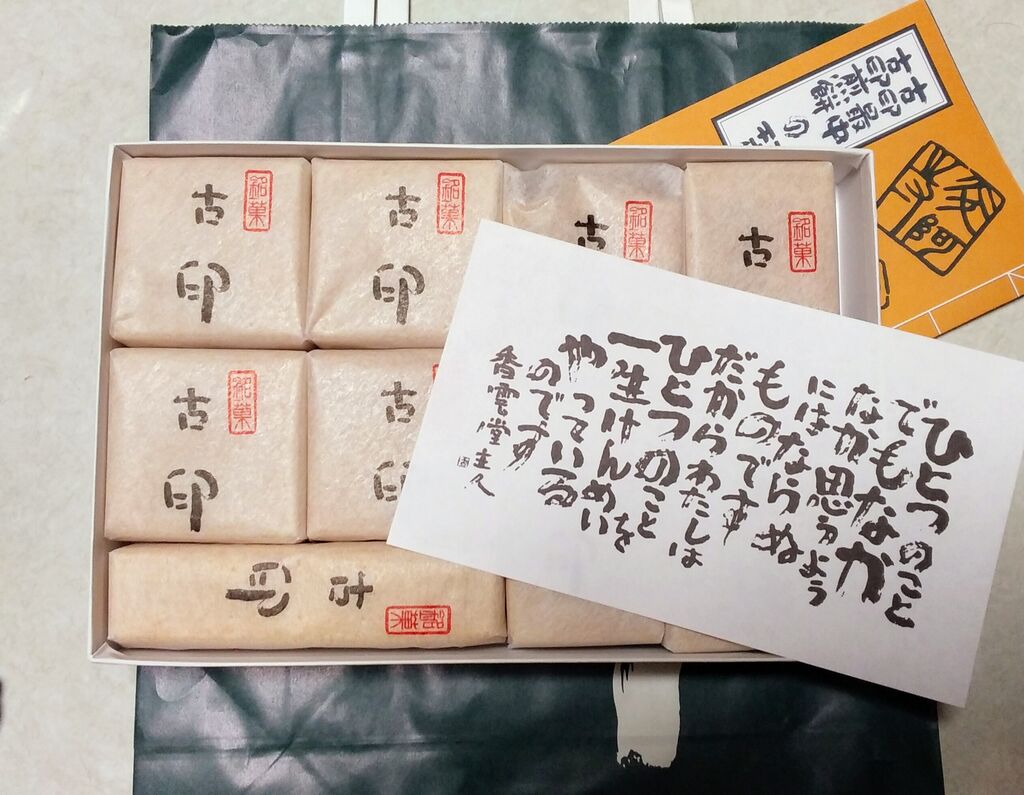 古印
銘菓
古印
銘菓
古
銘菓
古
銘菓
古印
銘菓
古印
古印
銘菓
古印最中
古印煎餅
の
ひとつのこと
でもなかなか
なか思うよう
にはならぬ
ものです
だからわたしは
ひとつのことを
一生けんめい
やっている
のです
香雲堂主人